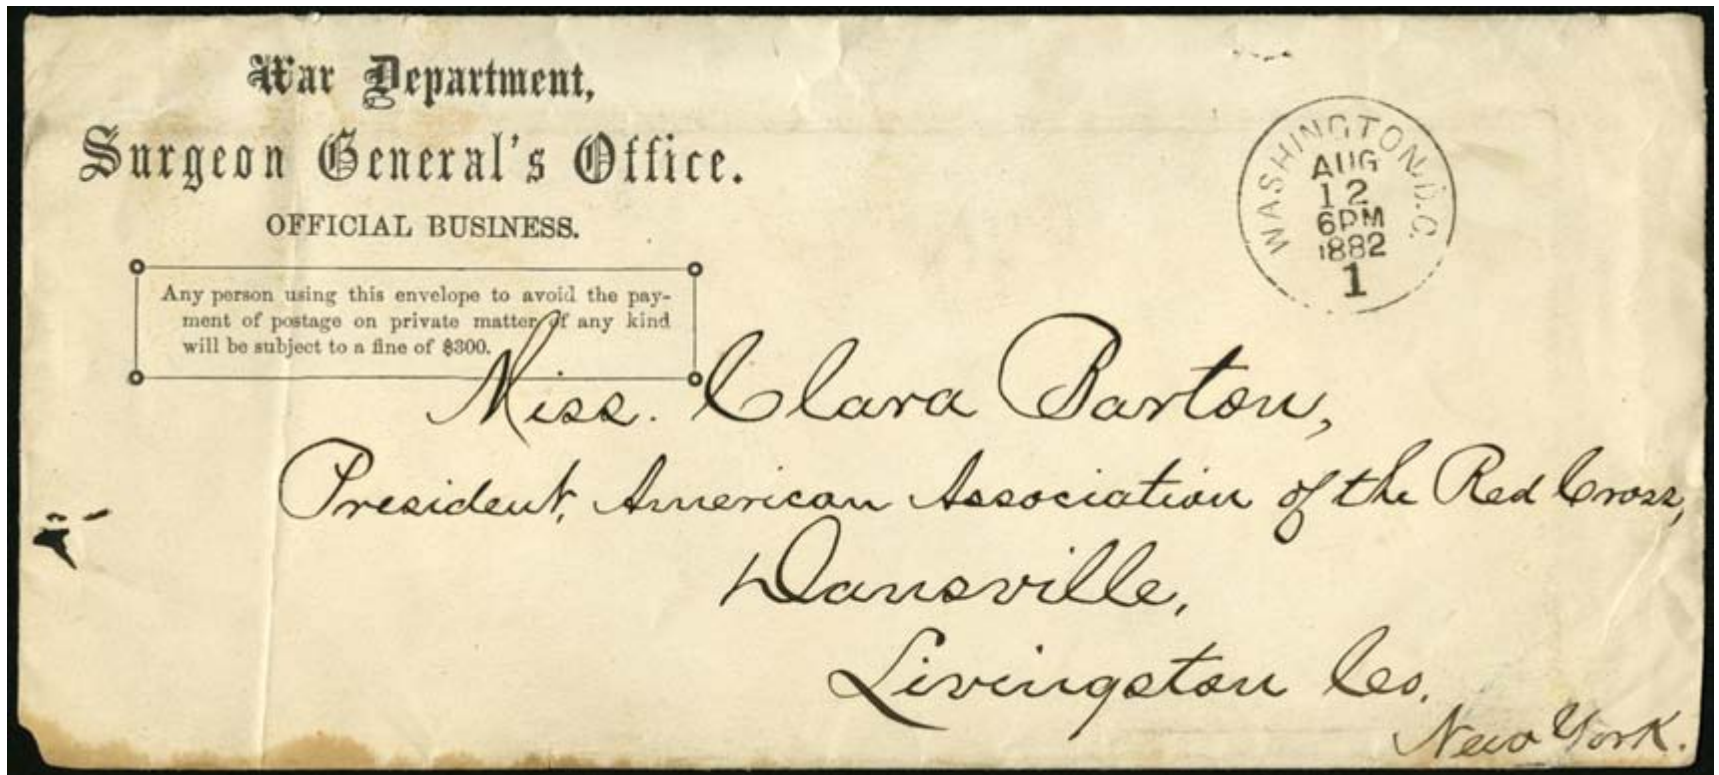 War Department,
Surgeon General's Office.
OFFICIAL BUSINESS.
Any person using this envelope to avoid the pay-
ment of postage on private matter of any kind
will be subject to a fine of $300.
WASHINGTON, D.C.
AUG
12
6PM
1882
1
Miss. Clara Barton,
President, American Association of the Red Cross,
Dansville,
Livingston Co.
New York.